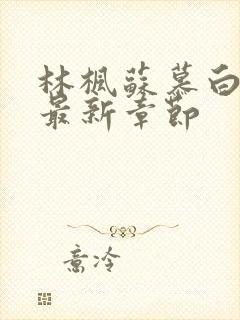 林楓蘇慕白
最新章節
意冷